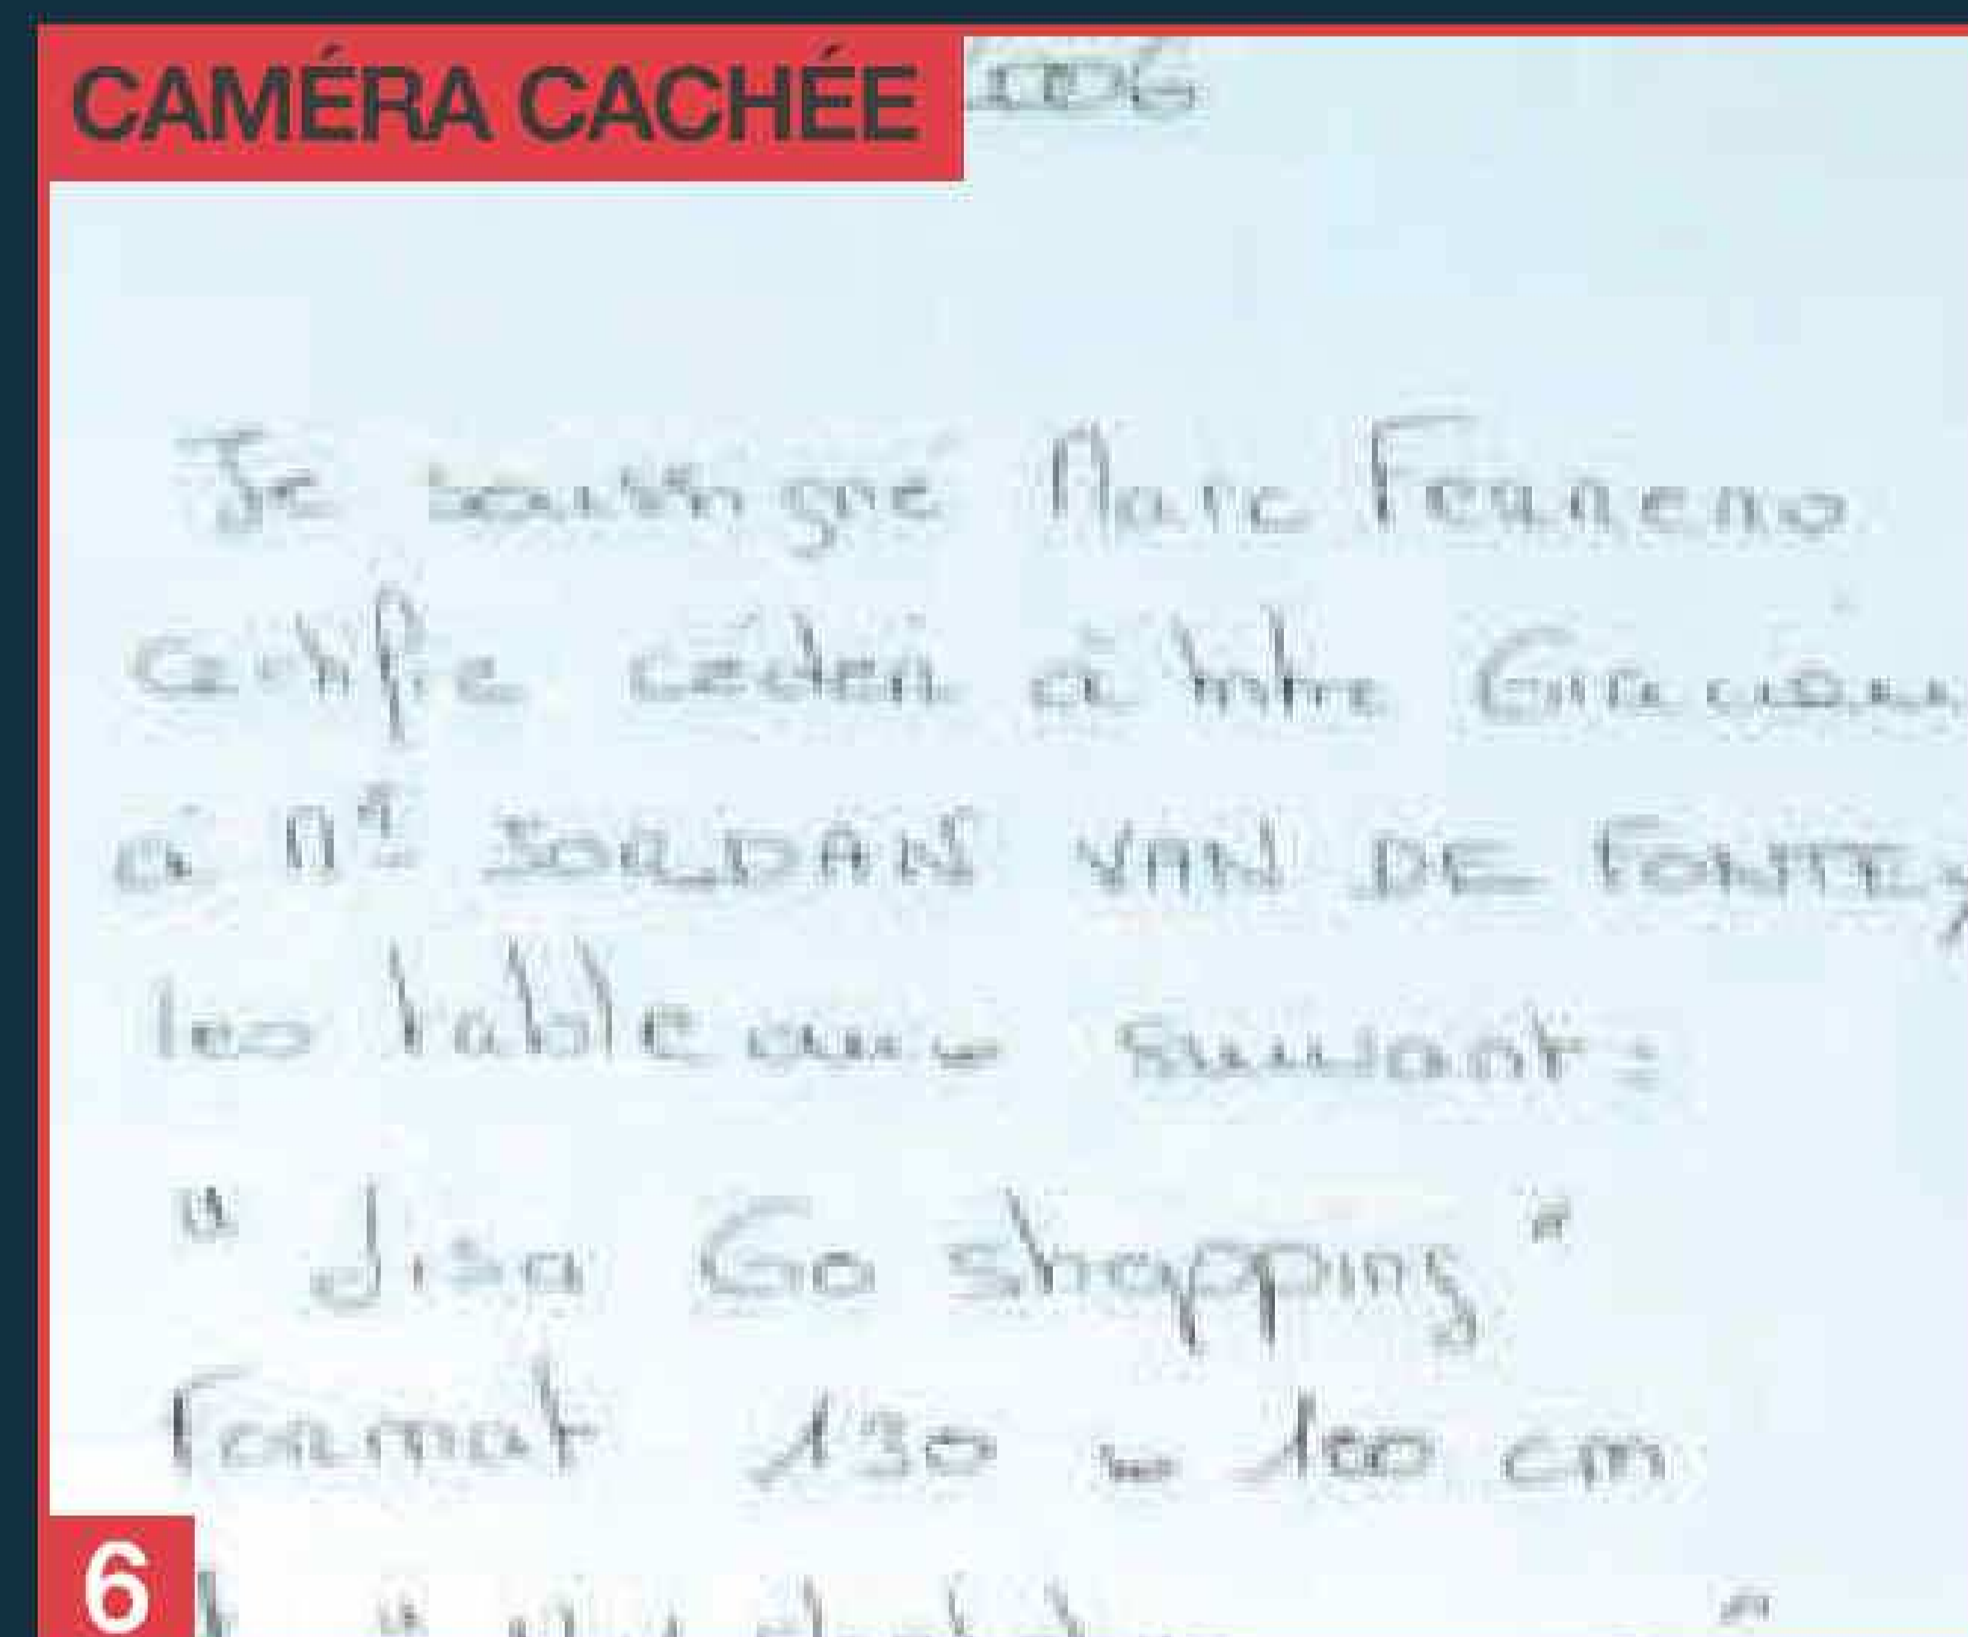 CAMÉRA CACHÉE
Je soussigné Marc Ferrero
Certifie céder à titre Gracieux
à Mr JORDAN VAN DE FONTEY
les tableaux suivant :
" Lisa Go shopping "
Format 130 × 100 cm
6